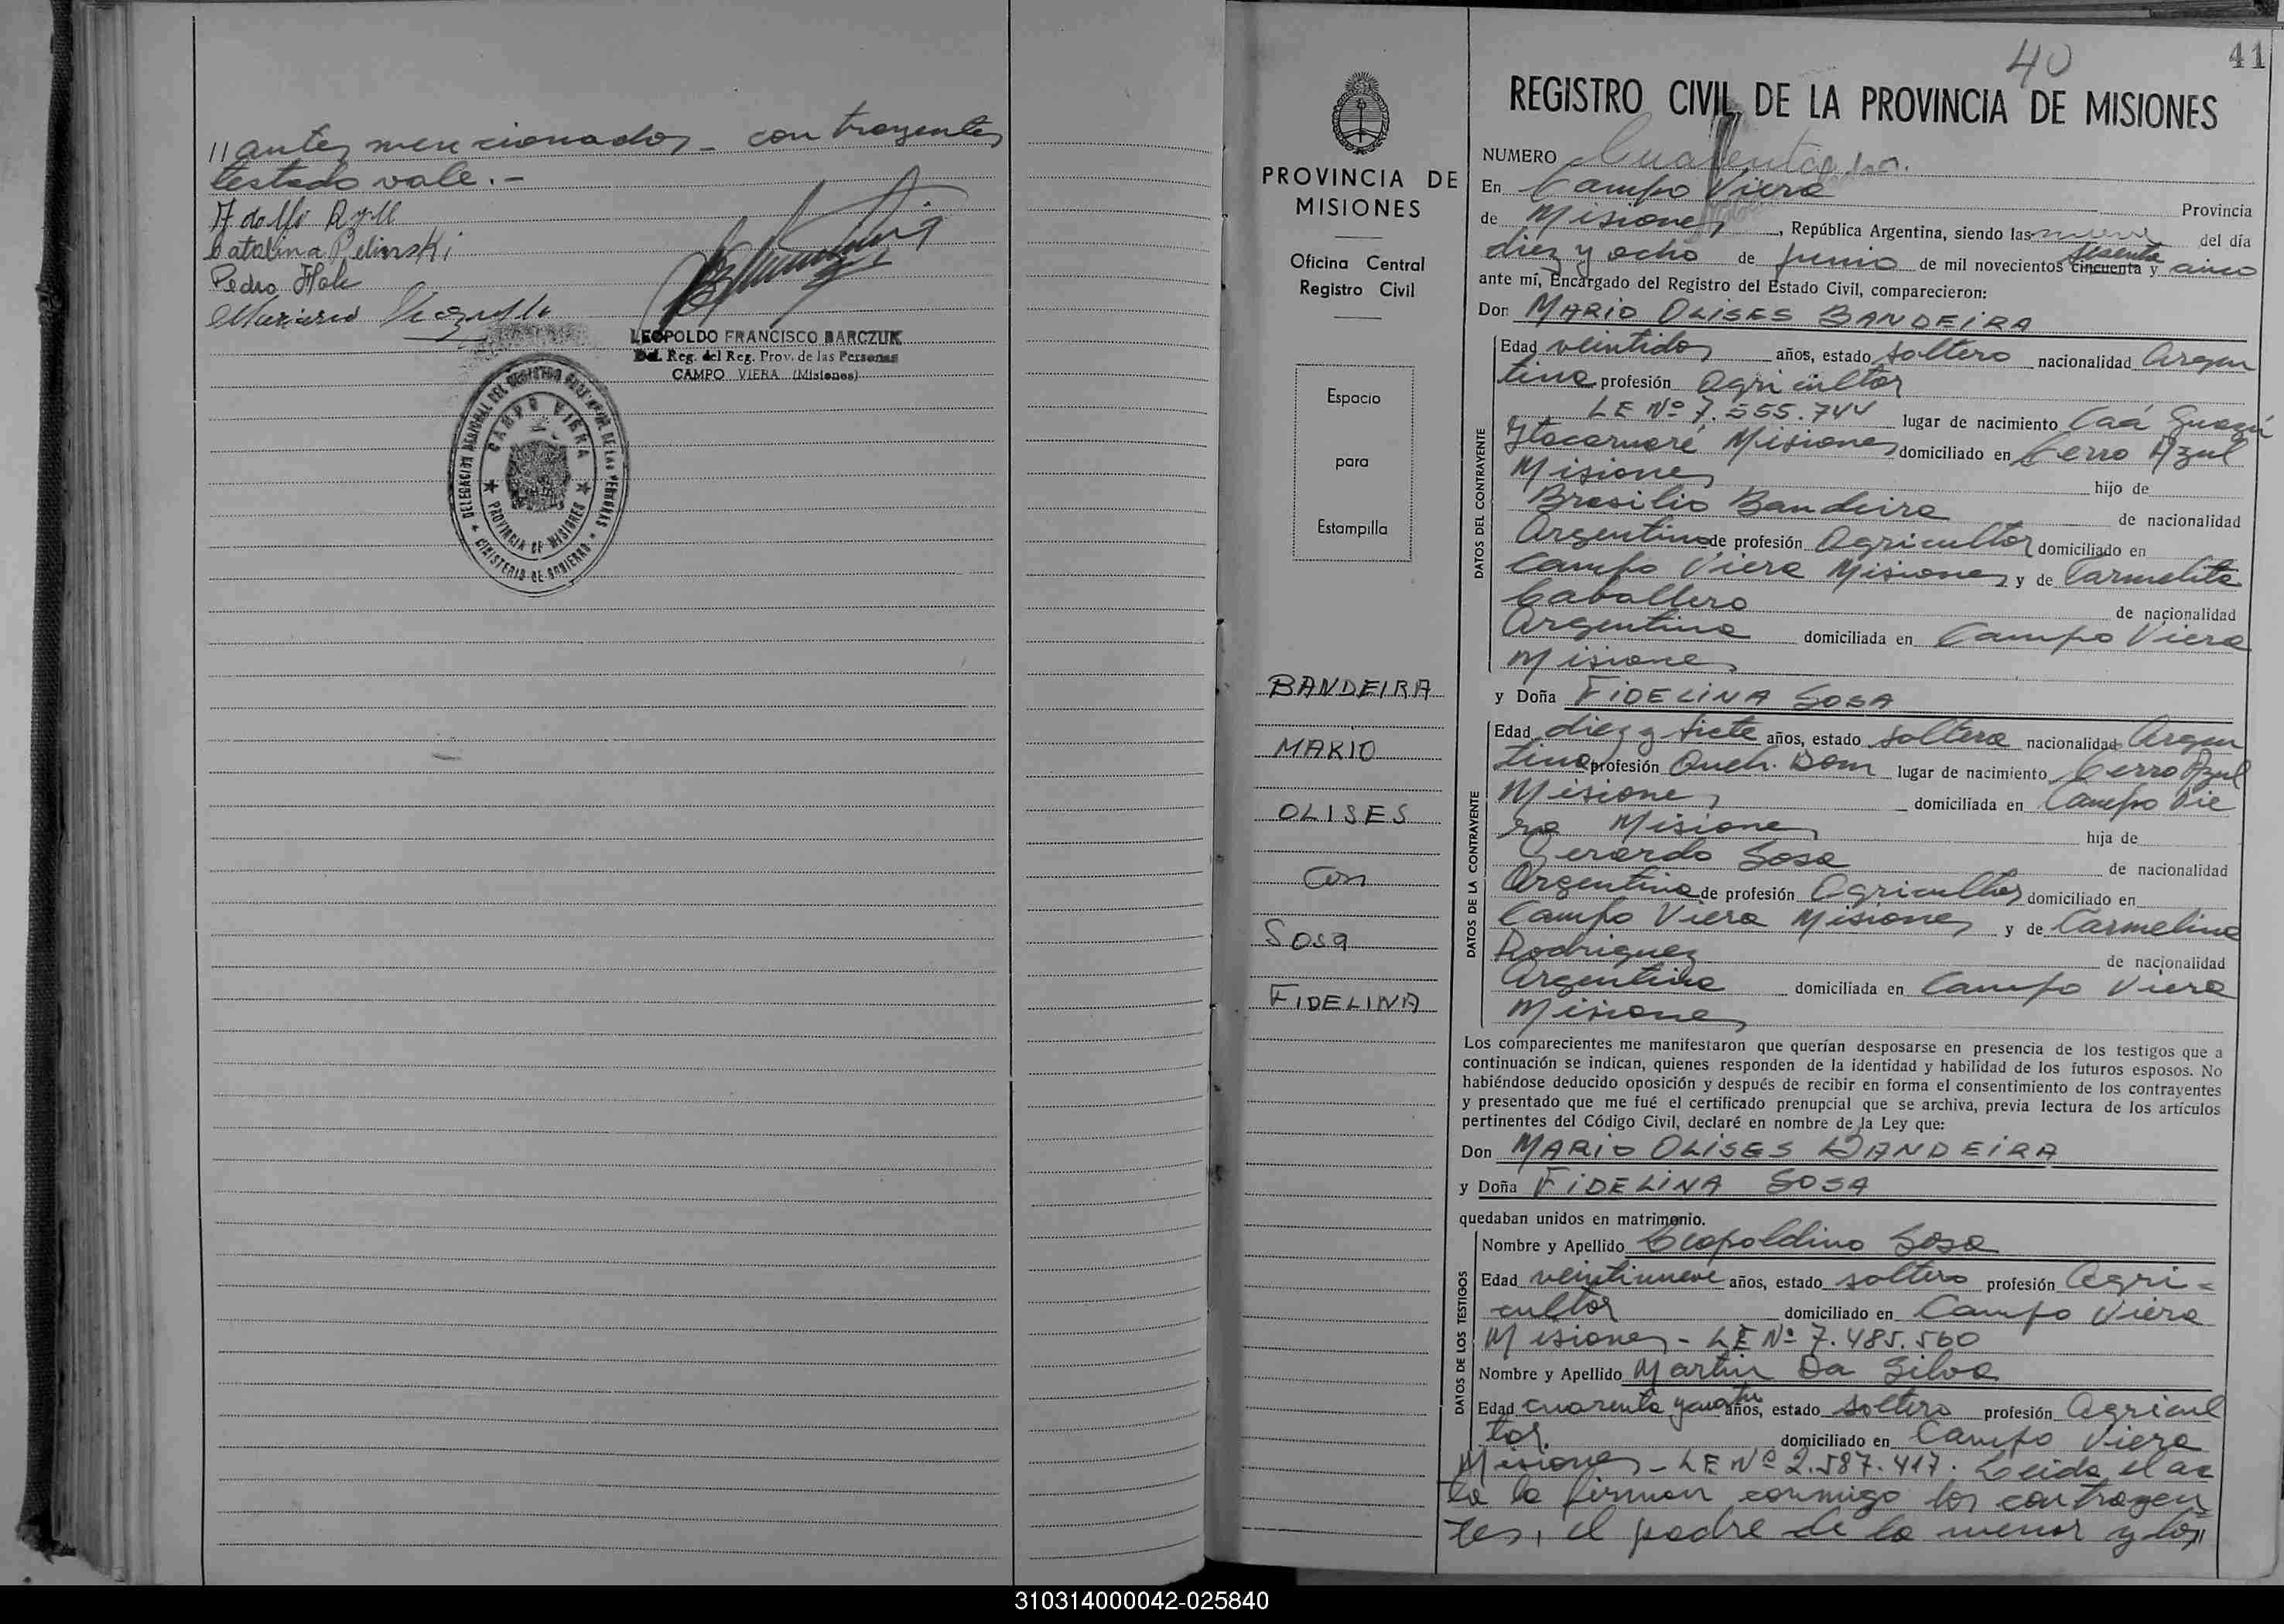 //antes mencionados - contrayentes
testado vale.-
Adolfo Ryll
Catalina Pelinski
Pedro
LEOPOLDO FRANCISCO BARCZUK
Del. Reg. del Reg. Prov. de las Personas
CAMPO VIERA (Misiones)
CAMPO VIERA
PROVINCIA DE MISIONES
MINISTERIO DE GOBIERNO
PROVINCIA DE
MISIONES
Oficina Central
Registro Civil
Espacio
para
Estampilla
BANDEIRA
MARIO
OLISES
Con
Sosa
FIDELINA
40
41
REGISTRO CIVIL DE LA PROVINCIA DE MISIONES
NUMERO Cuarenta
En Campo Viera Provincia
de Misiones, República Argentina, siendo las nueve del día
diez y ocho de Junio de mil novecientos cincuenta sesenta y cinco
ante mí, Encargado del Registro del Estado Civil, comparecieron:
Don MARIO OLISES BANDEIRA
DATOS DEL CONTRAYENTE
Edad veintidos años, estado soltero nacionalidad Argen
tina profesión Agricultor
LE Nº 7.555.744 lugar de nacimiento Caá Guazú
Itacaruaré Misiones domiciliado en Cerro Azul
Misiones hijo de
Brasilio Bandeira de nacionalidad
Argentina de profesión Agricultor domiciliado en
Campo Viera Misiones y de Carmelita
Caballero de nacionalidad
Argentina domiciliada en Campo Viera
Misiones
y Doña FIDELINA SOSA
DATOS DE LA CONTRAYENTE
Edad diez y siete años, estado soltera nacionalidad Argen
tina profesión Queh. Dom lugar de nacimiento Cerro Azul
Misiones domiciliada en Campo Vie
ra Misiones hija de
Gerardo Sosa de nacionalidad
Argentina de profesión Agricultor domiciliado en
Campo Viera Misiones y de Carmelina
Rodriguez de nacionalidad
Argentina domiciliada en Campo Viera
Misiones
Los comparecientes me manifestaron que querían desposarse en presencia de los testigos que a
continuación se indican, quienes responden de la identidad y habilidad de los futuros esposos. No
habiéndose deducido oposición y después de recibir en forma el consentimiento de los contrayentes
y presentado que me fué el certificado prenupcial que se archiva, previa lectura de los artículos
pertinentes del Código Civil, declaré en nombre de la Ley que:
Don MARIO OLISES BANDEIRA
y Doña FIDELINA SOSA
quedaban unidos en matrimonio.
DATOS DE LOS TESTIGOS
Nombre y Apellido Leopoldino Sosa
Edad veintinueve años, estado soltero profesión Agri-
cultor domiciliado en Campo Viera
Misiones - LE Nº 7.485.560
Nombre y Apellido Martin Da Silva
Edad cuarenta y cuatro años, estado soltero profesión Agricul
tor. domiciliado en Campo Viera
Misiones - LE Nº 2.587.417. Leida el ac
ta la firman conmigo los contrayen
tes, el padre de la menor y los//
310314000042-025840